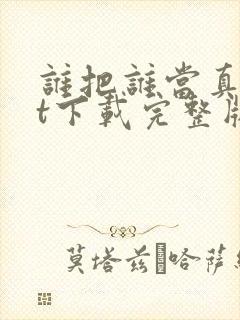 誰把誰當真
t下載完整版
莫塔兹·哈萨